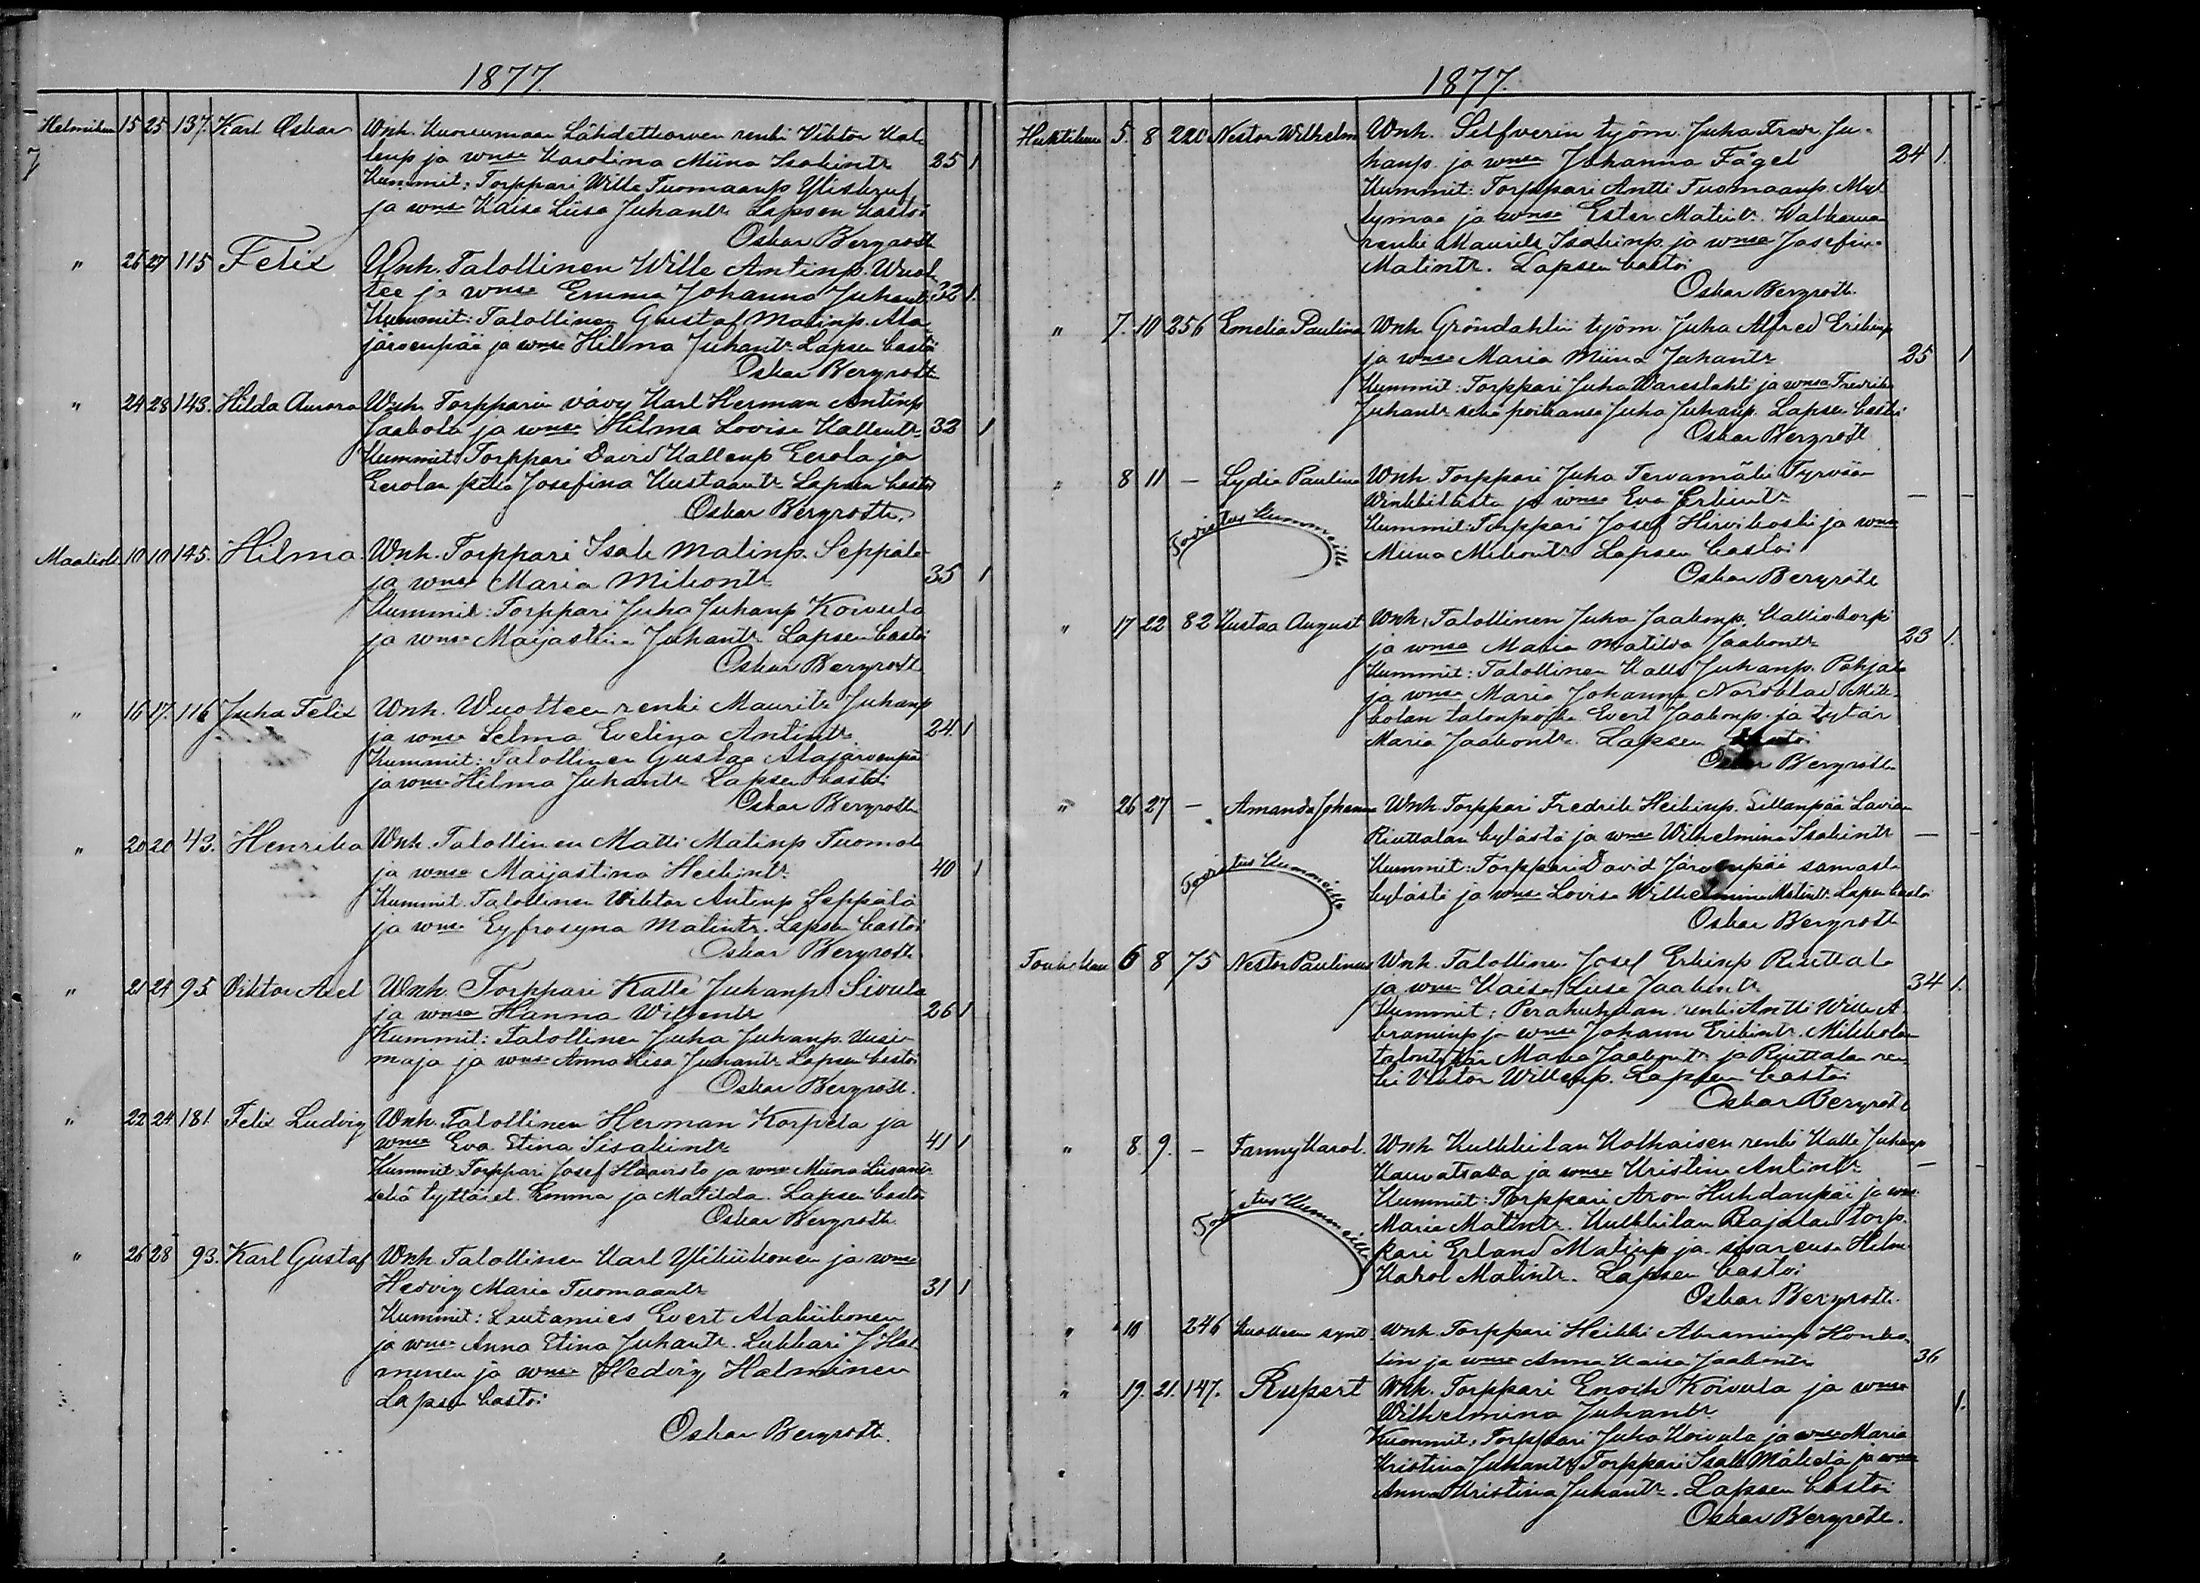 1877.
Helmikuu 15 25 137. Karl Oskar Wnh. Kuorumaan Lähdekorven renki Viktor Kal-
lenp ja wmsa Karolina Miina Isakintr 25 1
Kummit: Torppari Wille Tuomaanp
ja wmsa Kaisa Liisa Juhantr. Lapsen kastoi
Oskar Bergroth
" 26 27 115 Felix Wnh. Talollinen Wille Antinp. Wuol-
tee ja wmsa Emma Johanna Juhant. 32 1.
Kummit: Talollinen Gustaf Matinp. Ala-
järvenpää ja wmsa Hilma Juhantr. Lapsen kastoi
Oskar Bergroth
" 24 28 143. Hilda Aurora Wnh. Torpparin vävy Karl Herman Antinp
Jaakola ja wmsa Hilma Lovisa Kallentr. 32 1
Kummit: Torppari David Kallenp Eerola ja
Eerolan piika Josefina Kustaantr. Lapsen kastoi
Oskar Bergroth.
Maalisk. 10 10 145. Hilma Wnh. Torppari Isak Matinp. Seppälä
ja wmsa Maria Mikontr 35 1
Kummit: Torppari Juha Juhanp Koivula
ja wmsa Maijastiina Juhantr Lapsen kastoi
Oskar Bergroth
" 16 17. 116 Juha Felix Wnh. Wuolteen renki Maurits Juhanp
ja wmsa Selma Evelina Antintr 24. 1
Kummit: Talollinen Gustaa Alajärvenpää
ja wmsa Hilma Juhantr Lapsen kastoi
Oskar Bergroth
" 20 20 43. Henrika Wnh. Talollinen Matti Matinp Tuomola
ja wmsa Maijastina Heikintr. 40 1
Kummit. Talollinen Viktor Antinp Seppälä
ja wmsa Eyfrosyna Matintr. Lapsen kastoi
Oskar Bergroth
" 21 24 95 Viktor Axel Wnh. Torppari Kalle Juhanp. Sivula
ja wmsa Hanna Willentr 26 1
Kummit: Talollinen Juha Juhanp. Uusi-
maja ja wmsa Anna Liisa Juhantr Lapsen kastoi
Oskar Bergroth.
" 22 24 181. Felix Ludvig Wnh. Talollinen Herman Korpela ja
wmsa Eva Stina Isakintr 41 1
Kummit Torppari Josef Haavisto ja wmsa Miina Liisantr
sekä tyttäret Emma ja Matilda. Lapsen kastoi
Oskar Bergroth.
" 26 28 93. Karl Gustaf Wnh. Talollinen Karl Ylikiikonen ja wmsa
Hedvig Maria Tuomaantr 31 1
Kummit: Lautamies Evert Alakiikonen
ja wmsa Anna Stina Juhantr. Lukkari J Hal-
minen ja wmsa Hedvig Halminen
Lapsen kastoi
Oskar Bergroth.
1877.
Huhtikuu 5. 8 220 Nestor Wilhelm Wnh. Selfverin työm. Juha Fredr. Ju-
hanp. ja wmsa Johanna Fågel 24 1.
Kummit: Torppari Antti Tuomaanp. Myl-
lymaa ja wmsa Ester Matintr.
renki Maurits Isakinp. ja wmsa Josefina
Matintr. Lapsen kastoi
Oskar Bergroth.
" 7. 10 256 Emelia Paulina Wnh. Gröndahlin työm. Juha Alfred Erikinp
ja wmsa Maria Miina Juhantr 25 1
Kummit: Torppari Juha Wareslahti ja wmsa Fredrika
Juhantr sekä poikansa Juha Juhanp. Lapsen kastoi
Oskar Bergroth
" 8 11 — Lydia Paulina Wnh. Torppari Juha Tervamäki Tyrvään
ja wmsa Eva Erkintr — —
Todistus Kummeille
Kummit: Torppari Josef Hirvikoski ja wmsa
Miina Mikontr Lapsen kastoi
Oskar Bergroth
" 17 22 82 Kustaa August Wnh. Talollinen Juha Jaakonp. Kalliokorpi
ja wmsa Maria Matilda Jaakontr 23 1.
Kummit: Talollinen Kalle Juhanp. Pohjala
ja wmsa Maria Johanna Nordblad Mik-
kolan talonpoika Evert Jaakonp. ja tytär
Maria Jaakontr. Lapsen kastoi
Oskar Bergroth
" 26 27 — Amanda Johanna Wnh. Torppari Fredrik Heikinp. Sillanpää Lavian
Riuttalan kylästä ja wmsa Wilhelmina Isakintr — —
Todistus Kummeille
Kummit: Torppari David Järvenpää samasta
kylästä ja wmsa Lovisa Wilhelmina Matintr. Lapsen kastoi
Oskar Bergroth
Toukokuu 6 8 75 Nestor Paulinus Wnh. Talollinen Josef Erkinp Riuttala
ja wmsa Kaisa Liisa Jaakontr 34 1.
Kummit: Peräkuhdan renki Antti Wille A-
braminp ja wmsa Johanna Erikintr. Mikkolan
talontytär Maria Jaakontr ja Riuttalan ren-
ki Viktor Willenp. Lapsen kastoi
Oskar Bergroth
" 8. 9. — Fanny Karol. Wnh Kulkkilan Kolhaisen renki Kalle Juhanp
Kauvatsalta ja wmsa Kristina Antintr — —
Todistus Kummeille
Kummit: Torppari Aron Huhdanpää ja wmsa
Maria Matintr. Kulkkilan Rajalan torp-
pari Erland Matinp ja sisarensa Helm.
Karol Matintr. Lapsen kastoi
Oskar Bergroth.
" 10 246 Kuolleena synt. Wnh. Torppari Heikki Abraminp Honko-
ja wmsa Anna Kaisa Jaakontr 36
" 19. 21. 147. Rupert Wnh. Torppari Enok Koivula ja wmsa
Wilhelmina Juhantr 1.
Kummit: Torppari Juha Koivula ja wmsa Maria
Kristina Juhantr, Torppari Isak Mäkelä ja wmsa
Anna Kristina Juhantr. Lapsen kastoi
Oskar Bergroth.